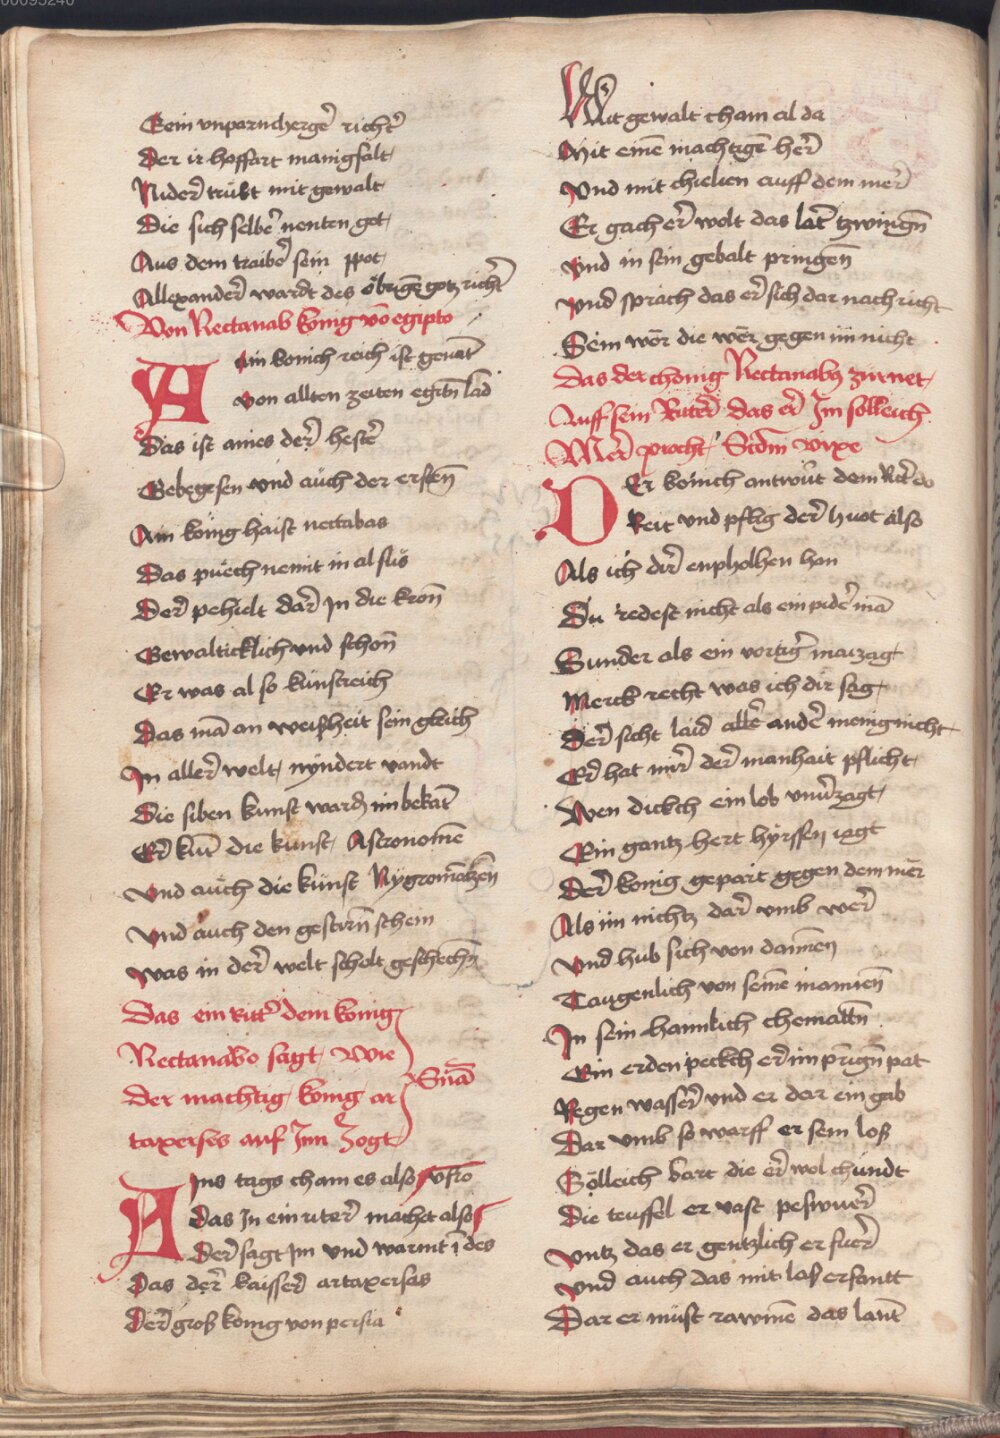 00095240
Sein vnparmcherge᷑ richt᷑
Der ir hoffart manigfalt
Nider᷑ trukt mit gewalt
Die sich selbe᷑ nenten got
Aus dem traibe᷑ sein spot
Allexander᷑ wardt des obrige᷑ gotz richt᷑
Von Nectanab konig vō egipto
Ain konich reich ist genāt
von allten zeiten egiptn̄ lād
Das ist aines der᷑ peste᷑
Gebegesen vnd auch der ersten̄
Ain konig haist nectabas
Das puech nennt in alsus
Der᷑ pehielt dar᷑ Jn die kron̄
Gewalticklich vnd schon̄
Er was al so kunstreich
Das mā an weisheit sein gleich
Jn aller᷑ welt nyndert vandt
Die siben kunst ward im bekāt
Er᷑ kūt die kunst Astronomē
Vnd auch die kunst Nygromātzen
Vnd auch den gestirn̄ schein
was in der᷑ welt scholt geschechn̄
Das ein ritt᷑ dem konig
Nectanabo sagt wie
der machtig konig ar
taxerses auf Jnn zogt
Ains tags cham es also
Das Jn ein riter᷑ machet also
Der᷑ sagt Jm vnd warnt ī des
Das der᷑ kaisser᷑ artaxerses
Der᷑ gros konig von persia
Mit gewalt cham al da
Mit einē machtigē her᷑
Vnd mit chielen auff dem mer᷑
Er gach er᷑ wolt das lāt tzwingn̄
Vnd in sein gebalt pringen̄
Vnd sprach das er᷑ sich dar nach richt
Sein wer die wer᷑ gegen im nicht
Das der chonig Nectanabus zurnet
Auff sein Ritter᷑ das er᷑ Jm solleich
Mer᷑ pracht
Der konich antwurt dem Rit᷑ do
Reit vnd pflig der᷑ huot also
Als ich dir᷑ enpholhen han
Du redest nicht als ein pider᷑ mā
Sunder als ein vortig᷑ maizag
Merck recht was ich dir sag
Der᷑ sicht laid alle᷑ ander᷑ menig nicht
Er᷑ hat mir᷑ der᷑ manhait pflicht
Wen dickch ein lob vnu᷑zagt
Ein gantz hert hyrssen iagt
Der᷑ konig gepart gegen dem mer
Als im nichtz dar᷑ vmb wer᷑
Vnd hub sich von dannen̄
Taugenlich von seinē mannen̄
Jn sein haimlich chemattn̄
Ein erden peckch er im prīgn̄ pat
Regen wasser᷑ vnd er dar ein gab
Dar vmb so warff er sein loß
Solleich bart die er᷑ wol chundt
Die teuffel er vast peswuer᷑
Vntz das er gentzlich er fuer᷑
Vnd auch das mit loß ersantt
Dar er must rawmē das lant᷑